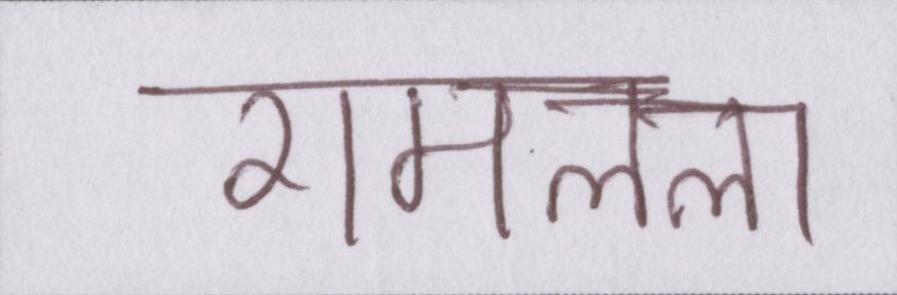 रामलला